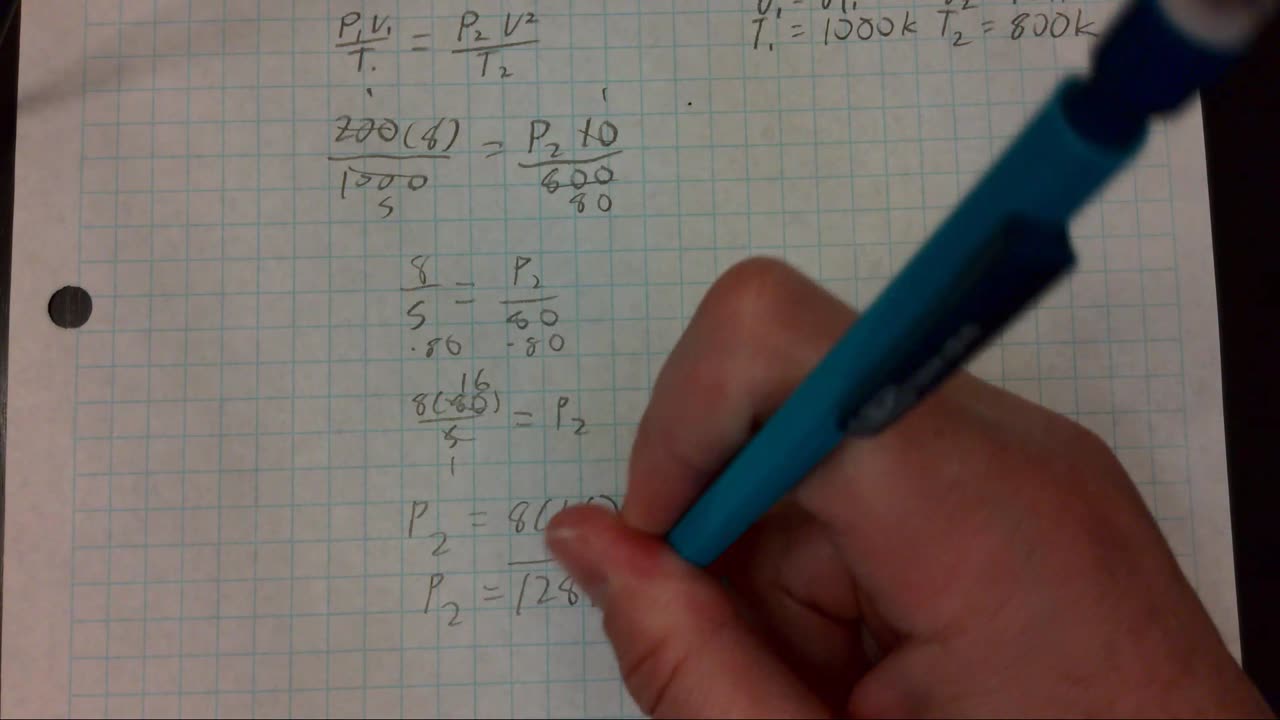 P₁V₁/T₁ = P₂ V²/T₂
T₁ = 1000k T₂ = 800k
200(8)/1000 = P₂ 10/800
5 80
8/5 = P₂/80
·80 ·80
16
8(80)/5 = P₂
1
P₂ = 8(
P₂ = 128